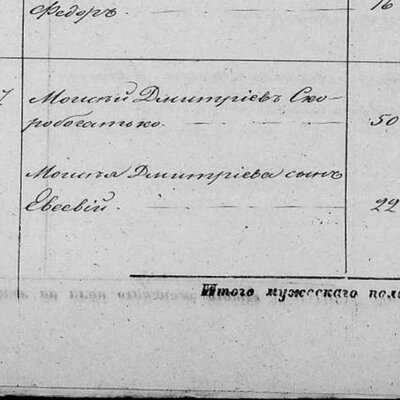 Федоръ. 16
7 Моисѣй Дмитріевъ Ско-
робогатько. 50
Моисѣя Дмитріева сынъ
Евсевій. 22
Итого мужескаго пола